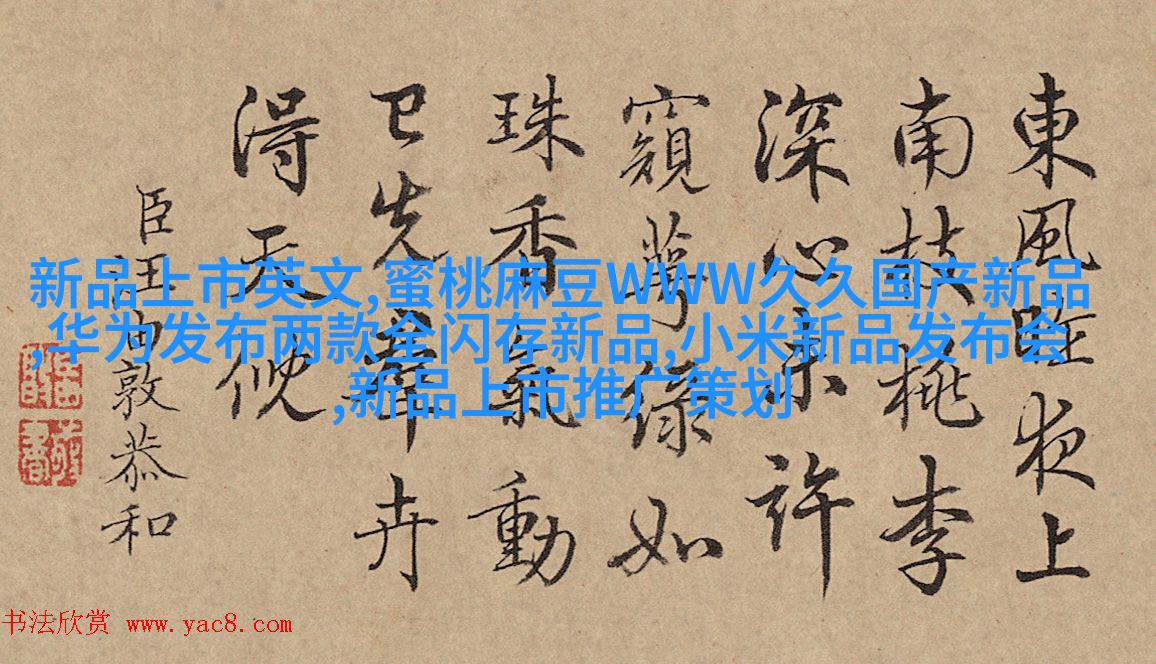 東風昨夜上
南枝桃李
深心未許
窺萼綠如
珠香氣動
已先羣卉
得天倪
臣汪由敦恭和
新品上市英文,蜜桃麻豆WWW久久国产新品
,华为发布两款全闪存新品,小米新品发布会
,新品上市推广策划
书法欣赏 www.yac8.com